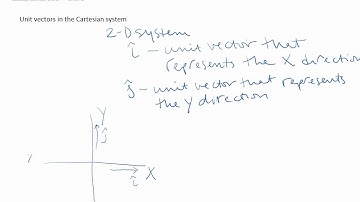 Unit vectors in the Cartesian system
2-D system
î - unit vector that
represents the X direction
ĵ - unit vector that represents
the Y direction
Y
ĵ
X
î